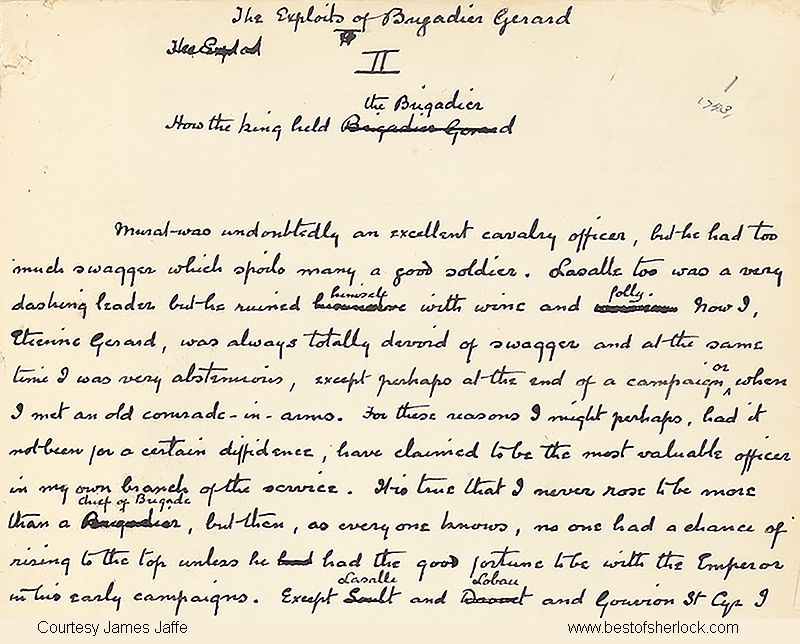 The Exploits of Brigadier Gerard
II
1
the Brigadier
How the King held Brigadier Gerard
Murat was undoubtedly an excellent cavalry officer, but he had too
much swagger which spoils many a good soldier. Lasalle too was a very
himself folly.
dashing leader but he ruined with wine and Now I,
Etienne Gerard, was always totally devoid of swagger and at the same
or
time I was very abstemious, except perhaps at the end of a campaign, when
I met an old comrade-in-arms. For these reasons I might perhaps, had it
not been for a certain diffidence, have claimed to be the most valuable officer
in my own branch of the service. It is true that I never rose to be more
Chief of Brigade
than a Brigadier, but then, as everyone knows, no one had a chance of
rising to the top unless he had had the good fortune to be with the Emperor
Lasalle Lobau
in his early campaigns. Except Soult and Davout and Gouvion St Cyr I
Courtesy James Jaffe www.bestofsherlock.com